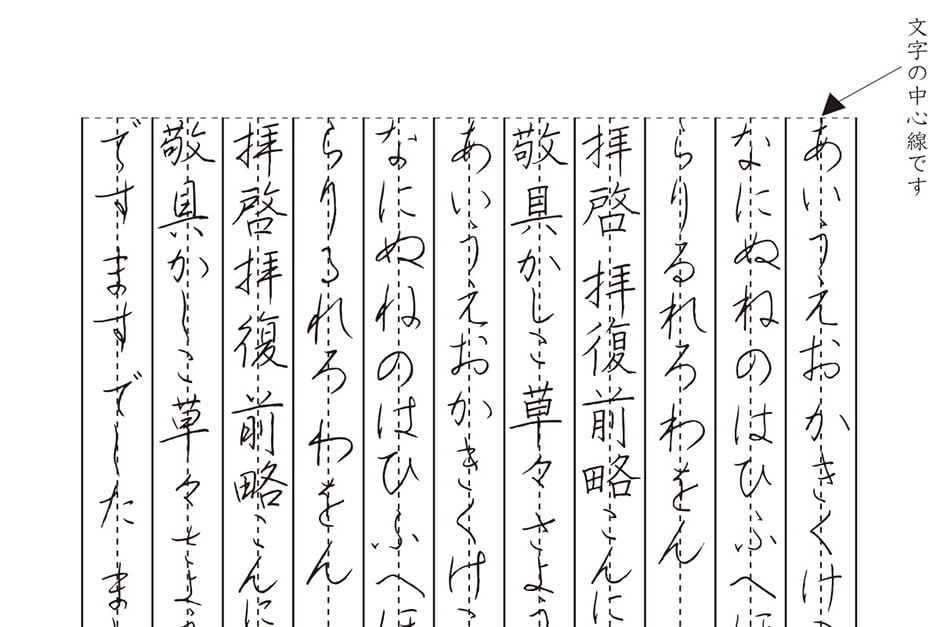 文字の中心線です
あいうえおかきくけ
なにぬねのはひふへほ
らりるれろわをん
拝啓 拝復前略こんに
敬具かしこ草々さよう
あいうえおかきくけこ
なにぬねのはひふへほ
らりるれろわをん
拝啓拝復前略こんに
敬具かしこ草々さよう
ですます でした ま